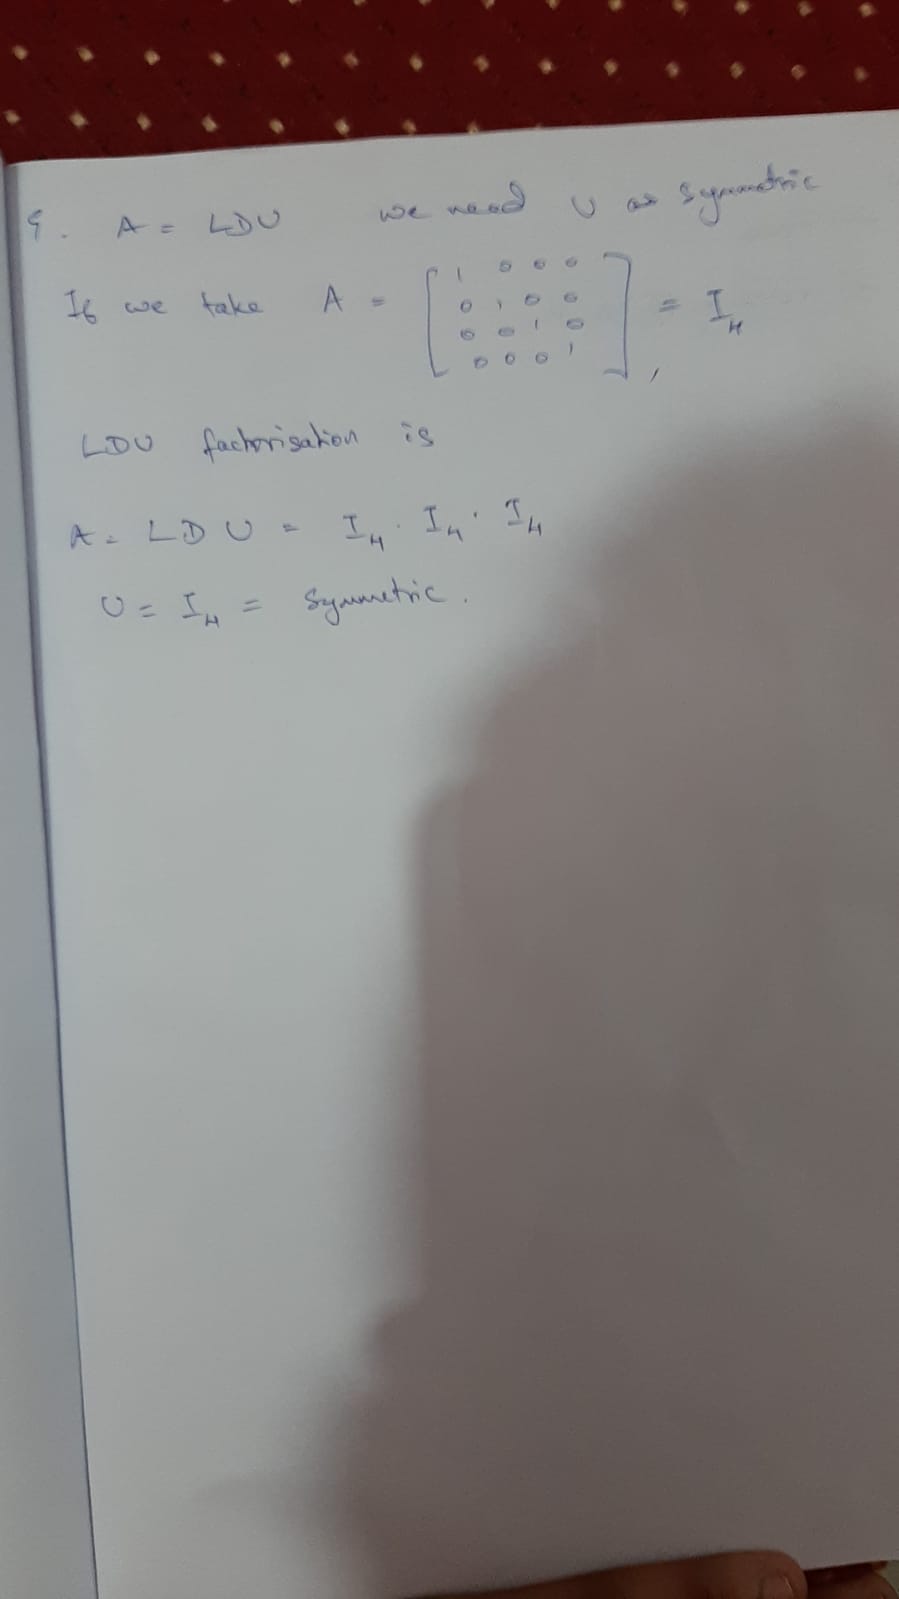 9. A = LDU we need U as symmetric
If we take A = [ 1 0 0 0
0 1 0 0
0 0 1 0
0 0 0 1 ] = I4,
LDU factorisation is
A = LDU = I4 · I4 · I4
U = I4 = Symmetric.